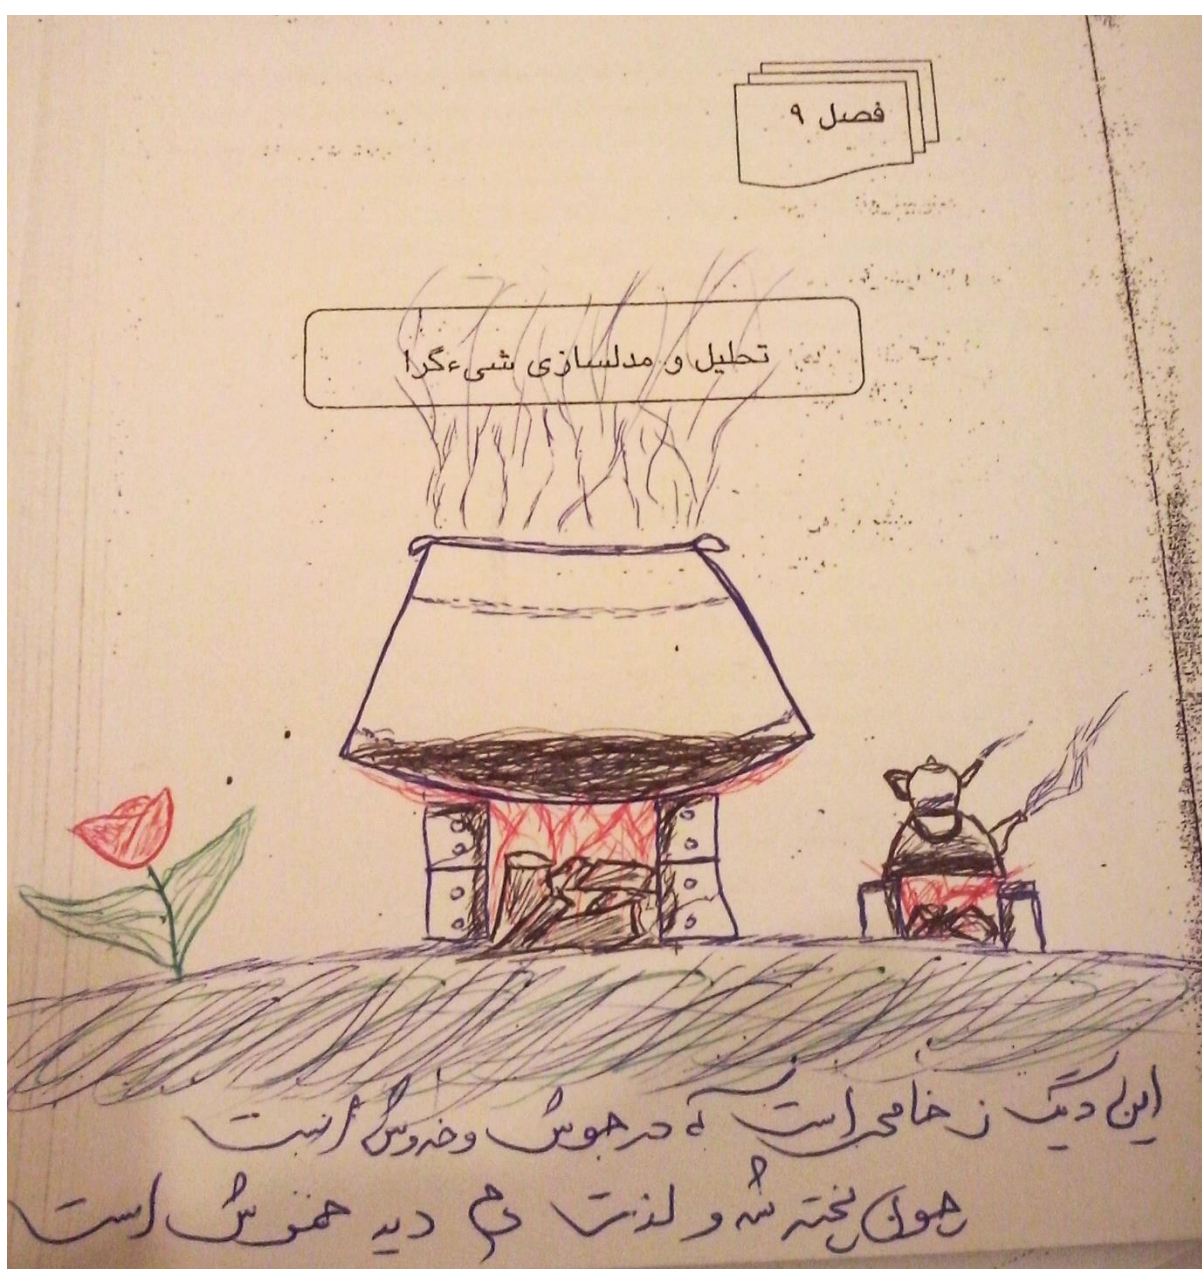 فصل ۹
تحلیل و مدلسازی شیءگرا
این دیگ ز خامی است که در جوش و خروش است
چون پخته شد و لذت دم دید خموش است